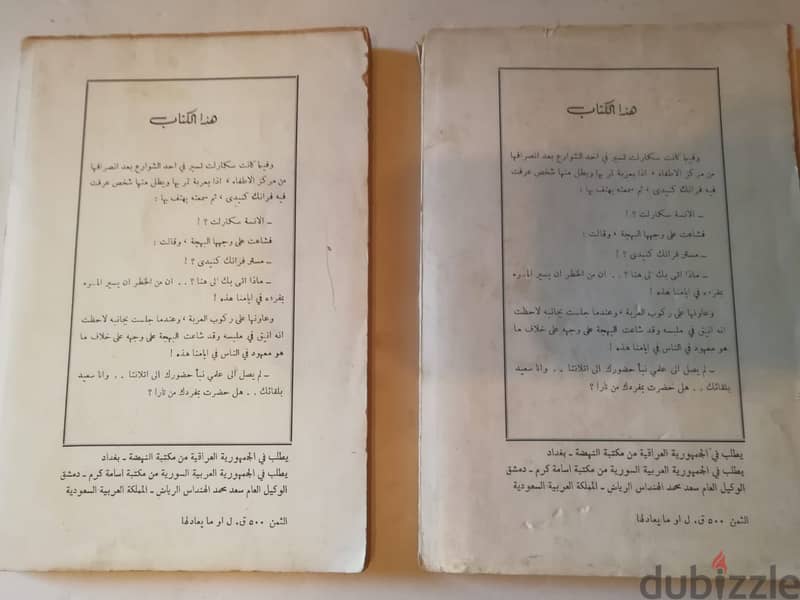 هذا الكتاب
وفيما كانت سكارلت تسير في احد الشوارع بعد انصرافها
من مركز الاطفاء ، اذا بعربة تمر بها ويطل منها شخص عرفت
فيه فرانك كنيدى ، ثم سمعته يهتف بها :
ـ الانسة سكارلت ؟ !
فشاعت على وجهها البهجة ، وقالت :
ـ مستر فرانك كنيدى ؟ !
ـ ماذا اتى بك الى هنا ؟ . . ان من الخطر ان يسير المرء
بمفرده في ايامنا هذه !
وعاونها على ركوب العربة ، وعندما جلست بجانبه لاحظت
انه انيق في ملبسه وقد شاعت البهجة على وجهه على خلاف ما
هو معهود في الناس في ايامنا هذه !
ـ لم يصل الى علمي نبأ حضورك الى اتلانتا . . وانا سعيد
بلقائك . . هل حضرت بمفردك من تارا ؟
يطلب في الجمهورية العراقية من مكتبة النهضة ـ بغداد
يطلب في الجمهورية العربية السورية من مكتبة اسامة كرم ـ دمشق
الوكيل العام سعد محمد الهنداس الرياض ـ المملكة العربية السعودية
الثمن ٥٠٠ ق. ل او ما يعادلها
هذا الكتاب
وفيما كانت سكارلت تسير في احد الشوارع بعد انصرافها
من مركز الاطفاء ، اذا بعربة تمر بها ويطل منها شخص عرفت
فيه فرانك كنيدى ، ثم سمعته يهتف بها :
ـ الانسة سكارلت ؟ !
فشاعت على وجهها البهجة ، وقالت :
ـ مستر فرانك كنيدى ؟ !
ـ ماذا اتى بك الى هنا ؟ . . ان من الخطر ان يسير المرء
بمفرده في ايامنا هذه !
وعاونها على ركوب العربة ، وعندما جلست بجانبه لاحظت
انه انيق في ملبسه وقد شاعت البهجة على وجهه على خلاف ما
هو معهود في الناس في ايامنا هذه !
ـ لم يصل الى علمي نبأ حضورك الى اتلانتا . . وانا سعيد
بلقائك . . هل حضرت بمفردك من تارا ؟
يطلب في الجمهورية العراقية من مكتبة النهضة ـ بغداد
يطلب في الجمهورية العربية السورية من مكتبة اسامة كرم ـ دمشق
الوكيل العام سعد محمد الهنداس الرياض ـ المملكة العربية السعودية
الثمن ٥٠٠ ق. ل او ما يعادلها
dubizzle